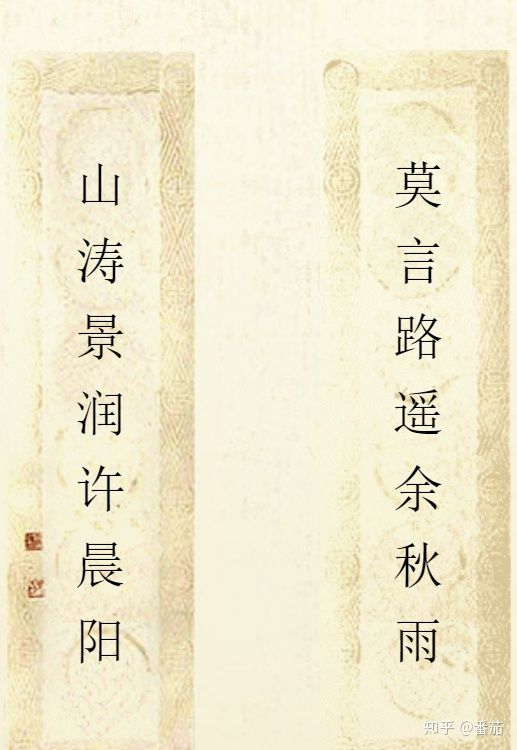 莫言路遥余秋雨
山涛景润许晨阳
知乎 @番茄